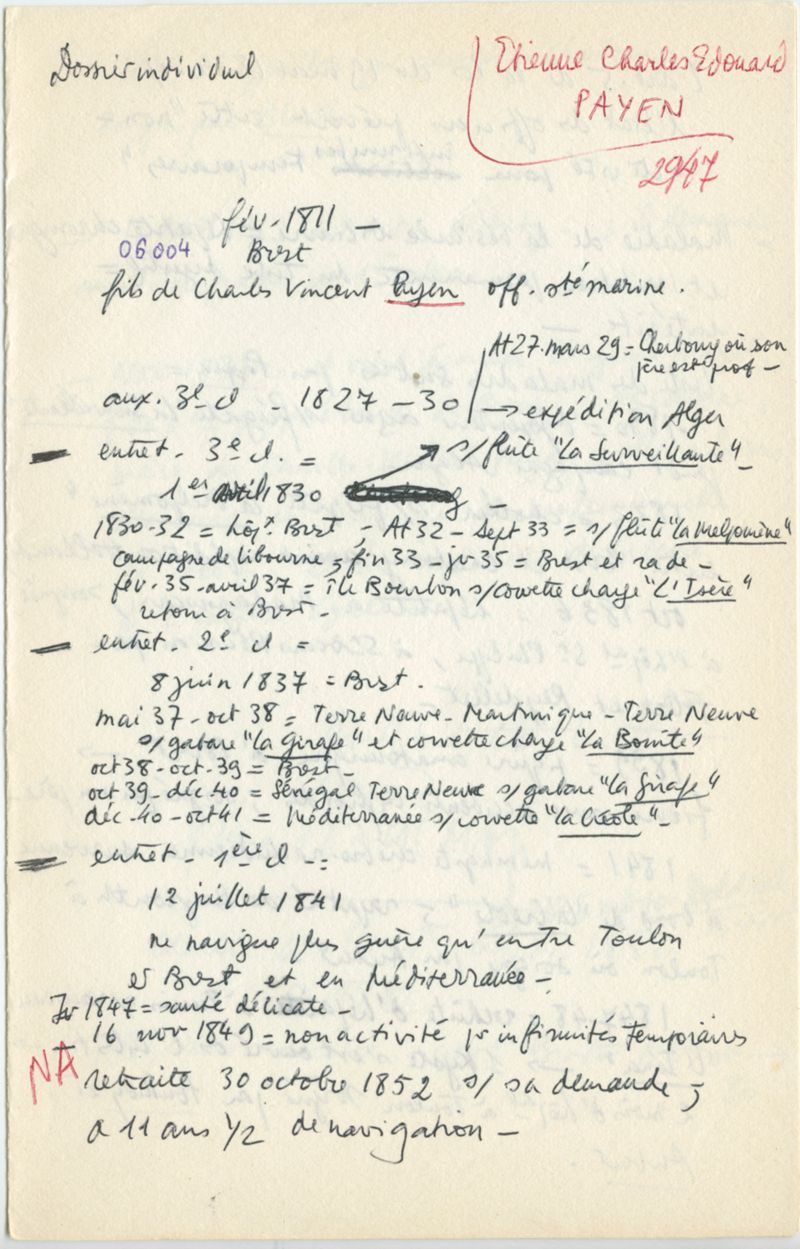 Dossier individuel
Etienne Charles Edouard
PAYEN
2947
fév. 1811 —
06004
Brest
fils de Charles Vincent Payen off. sté marine.
At 27. mars 29 = Cherbourg où son
père est prof —
aux. 3e cl - 1827 - 30 → expédition Alger
entret. 3e cl. = s/ flûte "La Surveillante" -
1er Avril 1830 —
1830-32 = hôpx Brest ; At 32 - Sept 33 = s/ flûte "la Melpomène"
campagne de Libourne ; fin 33 - jr 35 = Brest et rade -
fév. 35 - avril 37 = île Bourbon s/ corvette charge "L'Isère"
retour à Brest -
entret. 2e cl =
8 juin 1837 = Brest.
mai 37 - oct 38 = Terre Neuve - Martinique - Terre Neuve
s/ gabare "la Girafe" et corvette charge "la Bonite"
oct 38 - oct - 39 = Brest -
oct 39 - déc 40 = Sénégal Terre Neuve s/ gabare "la Girafe"
déc - 40 - oct 41 = Méditerranée s/ corvette "la Créole" -
entret - 1ère cl -:
12 juillet 1841
ne navigue plus guère qu'entre Toulon
et Brest et en Méditerranée -
Jr 1847 = santé délicate -
16 nov 1849 = non activité pr infirmités temporaires
NA
retraite 30 octobre 1852 s/ sa demande ;
a 11 ans 1/2 de navigation -